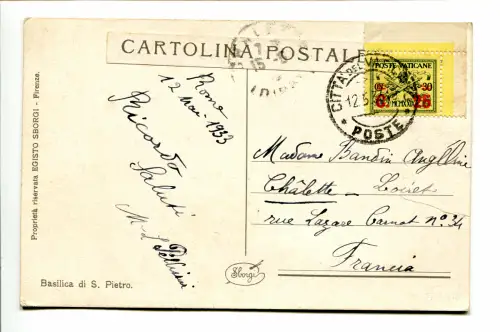 CARTOLINA POSTALE
POSTE VATICANE
30
25
CITTÀ DEL
12.5.
POSTE
Roma
12 Mai - 1933
Ricordo
Saluti
Madame Bandin Angelline
Châlette - Loiret
rue Lazare Carnot n° 34
Francia
Proprietà riservata EGISTO SBORGI - Firenze.
Basilica di S. Pietro.
Sborgi